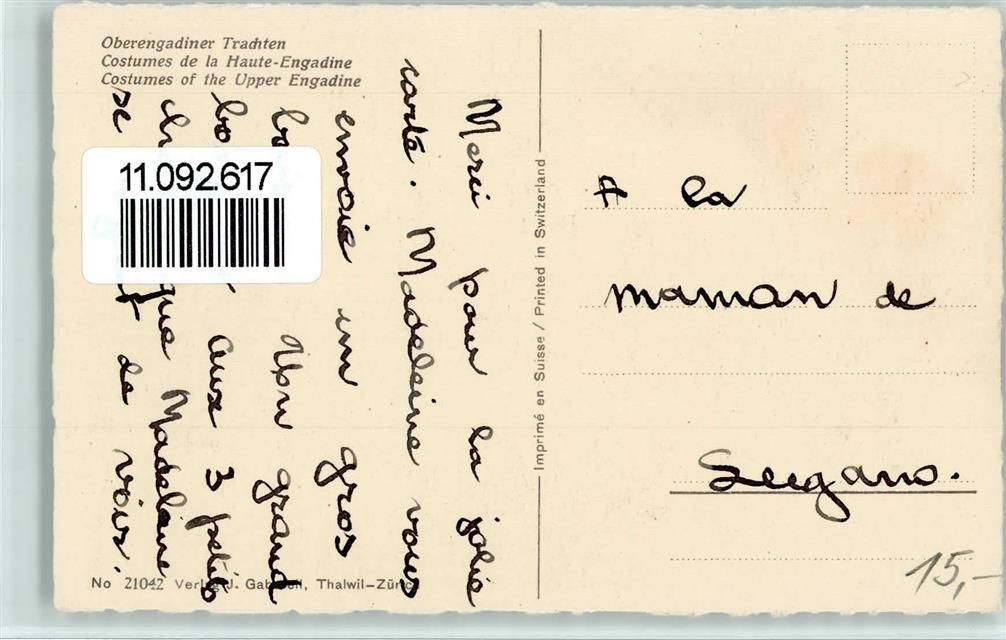 Oberengadiner Trachten
Costumes de la Haute-Engadine
Costumes of the Upper Engadine
11.092.617
Merci pour la jolie
carte. Madeleine vous
envoie un gros
Un grand
aux 3 petits
que Madeleine
de voir.
Imprimé en Suisse / Printed in Switzerland
A la
maman de
Lugano.
15,-
No 21042 Verlag J. Gaberell, Thalwil-Zürich